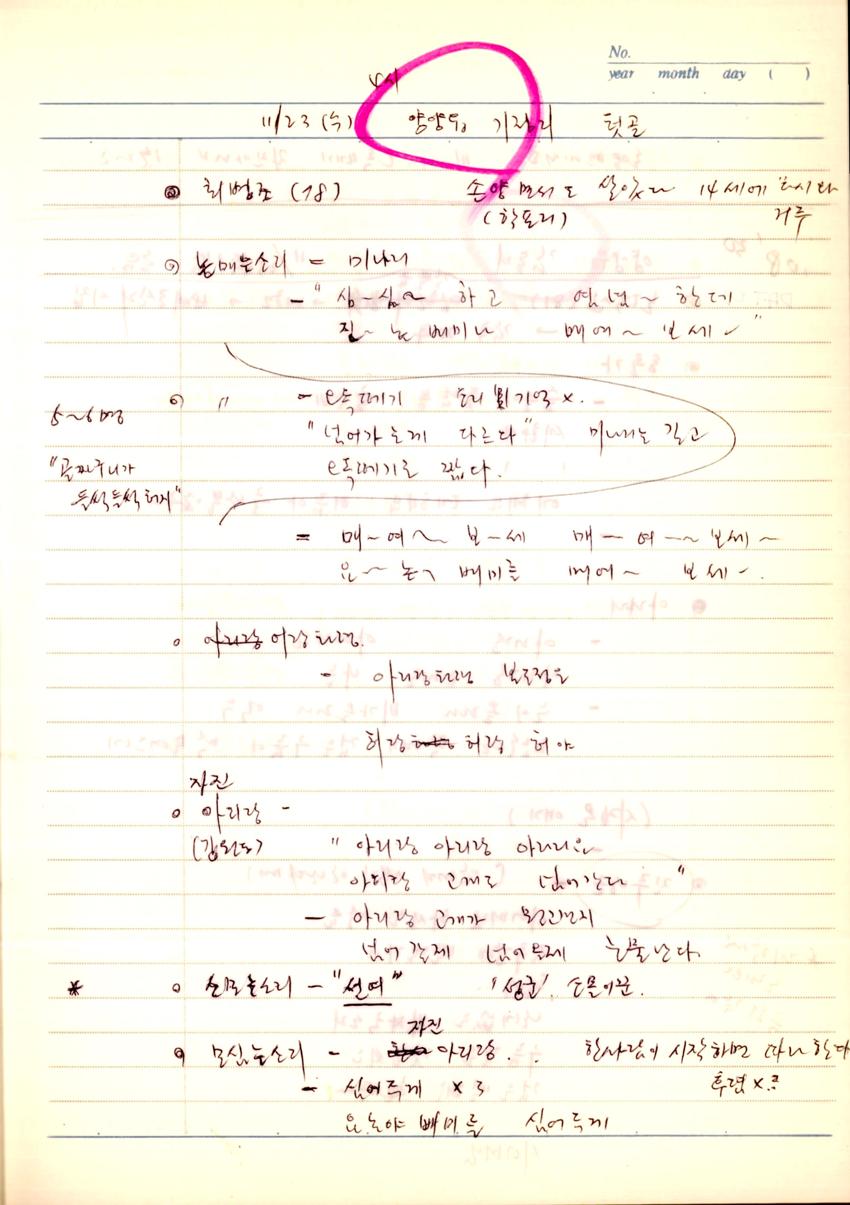 No.
year month day ( )
4시
11/23 (수) 양양읍 기정리 텃골
최병조 (78) 손양면서도 살았다 14세에
(학포리) 거루
논매는소리 = 미나리
- " 심~심~ 하고 하는데
논 배미나 매여~ 보세~ "
〃 - 오독떼기 소리 기억 x.
5~6명
"넘어가는게 다르다" 미나리는 길고
"골짜구니가
들썩들썩하지"
오독떼기는 짧다.
= 매~여~ 보~세 매~여~ 보세~
요~ 논 배미를 매여~ 보세~.
아리랑 어랑타령.
- 아리랑타령
허랑 허랑 허야
자진
아리랑 -
(강원도) " 아리랑 아리랑 아라리요
아리랑 고개로 넘어간다 "
- 아리랑 고개가
넘어갈제 넘어올제 눈물난다.
* 소모는소리 - "선여" '성군'. 소몰이꾼.
자진
모심는소리 - 아리랑. 한사람이 시작하면 따라한다
- 심어주게 x 3 후렴 x.
요 논야 배미를 심어주게